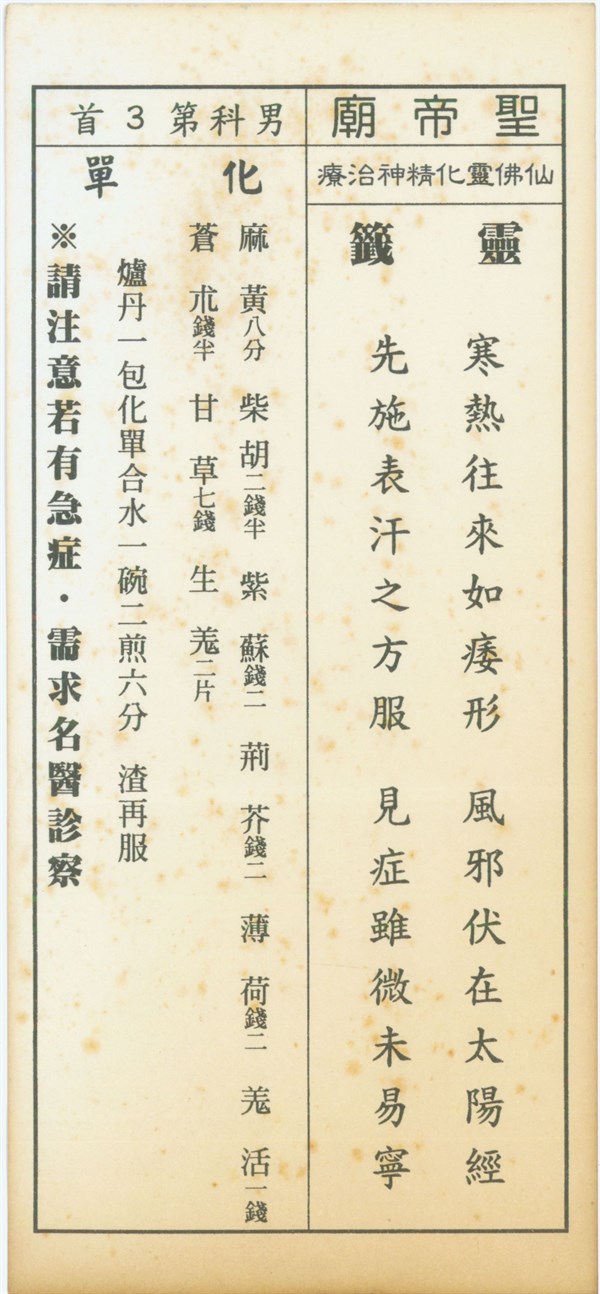 聖帝廟
仙佛靈化精神治療
靈籤
寒熱往來如痿形　風邪伏在太陽經
先施表汗之方服　見症雖微未易寧
男科第3首
化單
麻黃八分　柴胡二錢半　紫蘇錢二　荊芥錢二　薄荷錢二　羗活一錢
蒼朮錢半　甘草七錢　生羗二片
爐丹一包化單合水一碗二煎六分　渣再服
※請注意若有急症・需求名醫診察